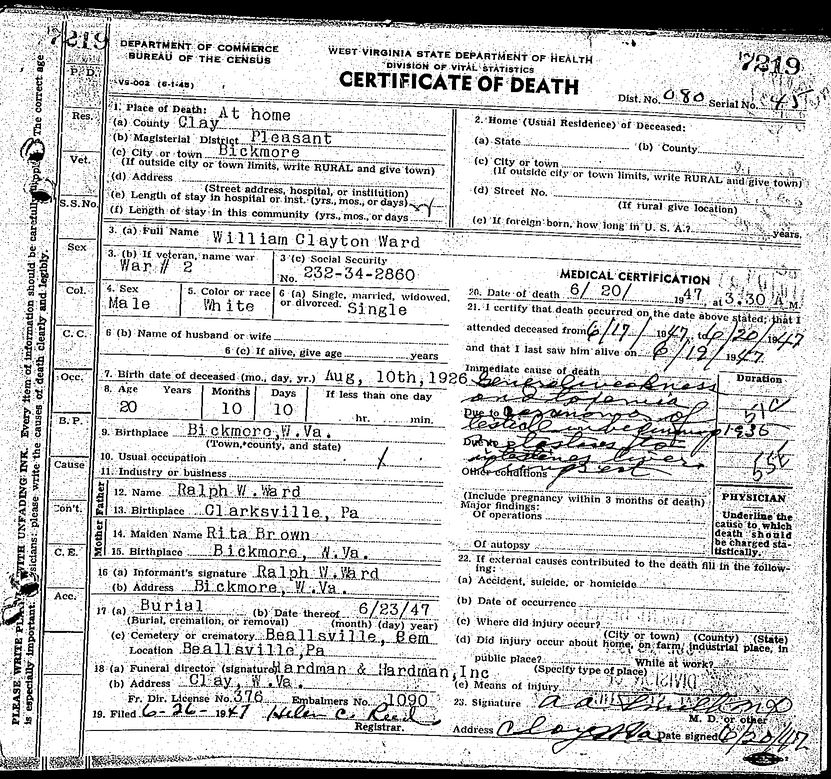 7219
DEPARTMENT OF COMMERCE
BUREAU OF THE CENSUS
VS-002 (6-1-45)
WEST VIRGINIA STATE DEPARTMENT OF HEALTH
DIVISION OF VITAL STATISTICS
CERTIFICATE OF DEATH
7219
Dist. No. 080 Serial No. 45
P. D.
Res.
Vet.
S.S.No.
Sex
Col.
C. C.
Occ.
B. P.
Cause
Con't.
C. E.
Acc.
1. Place of Death: At home
(a) County Clay
(b) Magisterial District Pleasant
(c) City or town Bickmore
(If outside city or town limits, write RURAL and give town)
(d) Address
(Street address, hospital, or institution)
(e) Length of stay in hospital or inst. (yrs., mos., or days)
(f) Length of stay in this community (yrs., mos., or days
2. Home (Usual Residence) of Deceased:
(a) State (b) County
(c) City or town
(If outside city or town limits, write RURAL and give town)
(d) Street No.
(If rural give location)
(e) If foreign born, how long in U. S. A.? years.
3. (a) Full Name William Clayton Ward
3. (b) If veteran, name war
War # 2
3 (c) Social Security
No. 232-34-2860
4. Sex
Male
5. Color or race
White
6 (a) Single, married, widowed,
or divorced. Single
6 (b) Name of husband or wife
6 (c) If alive, give age years
7. Birth date of deceased (mo., day, yr.) Aug, 10th, 1926
8. Age Years Months Days If less than one day
20 10 10 hr. min.
9. Birthplace Bickmore, W.Va.
(Town, county, and state)
10. Usual occupation
11. Industry or business
Father
12. Name Ralph W.Ward
13. Birthplace Clarksville, Pa
Mother
14. Maiden Name Rita Brown
15. Birthplace Bickmore, W.Va.
16 (a) Informant's signature Ralph W.Ward
(b) Address Bickmore, W.Va.
17 (a) Burial (b) Date thereof 6/23/47
(Burial, cremation, or removal) (month) (day) (year)
(c) Cemetery or crematory Beallsville, Cem
Location Beallsville, Pa
18 (a) Funeral director (signature) Hardman & Hardman, Inc
(b) Address Clay, W.Va.
Fr. Dir. License No. 376 Embalmers No. 1090
19. Filed 6-26- 1947 Helen C. Reed
Registrar.
MEDICAL CERTIFICATION
20. Date of death 6/ 20/ 1947 at 3.30 A M
21. I certify that death occurred on the date above stated; that I
attended deceased from 6/17/ 1947, to 6/20/1947
and that I last saw him alive on 6/19/ 1947.
Immediate cause of death
Duration
General weakness
and
Due to
1936
Due to
Other conditions
(Include pregnancy within 3 months of death)
Major findings:
Of operations
Of autopsy
PHYSICIAN
Underline the
cause to which
death should
be charged sta-
tistically.
22. If external causes contributed to the death fill in the follow-
ing:
(a) Accident, suicide, or homicide
(b) Date of occurrence
(c) Where did injury occur?
(City or town) (County) (State)
(d) Did injury occur about home, on farm, industrial place, in
public place? While at work?
(Specify type of place)
(e) Means of injury
23. Signature
M. D. or other
Address Clay W Va Date signed 6/20/47
PLEASE WRITE WITH UNFADING INK. Every item of information should be carefully The correct age
is especially important. please write the causes of death clearly and legibly.